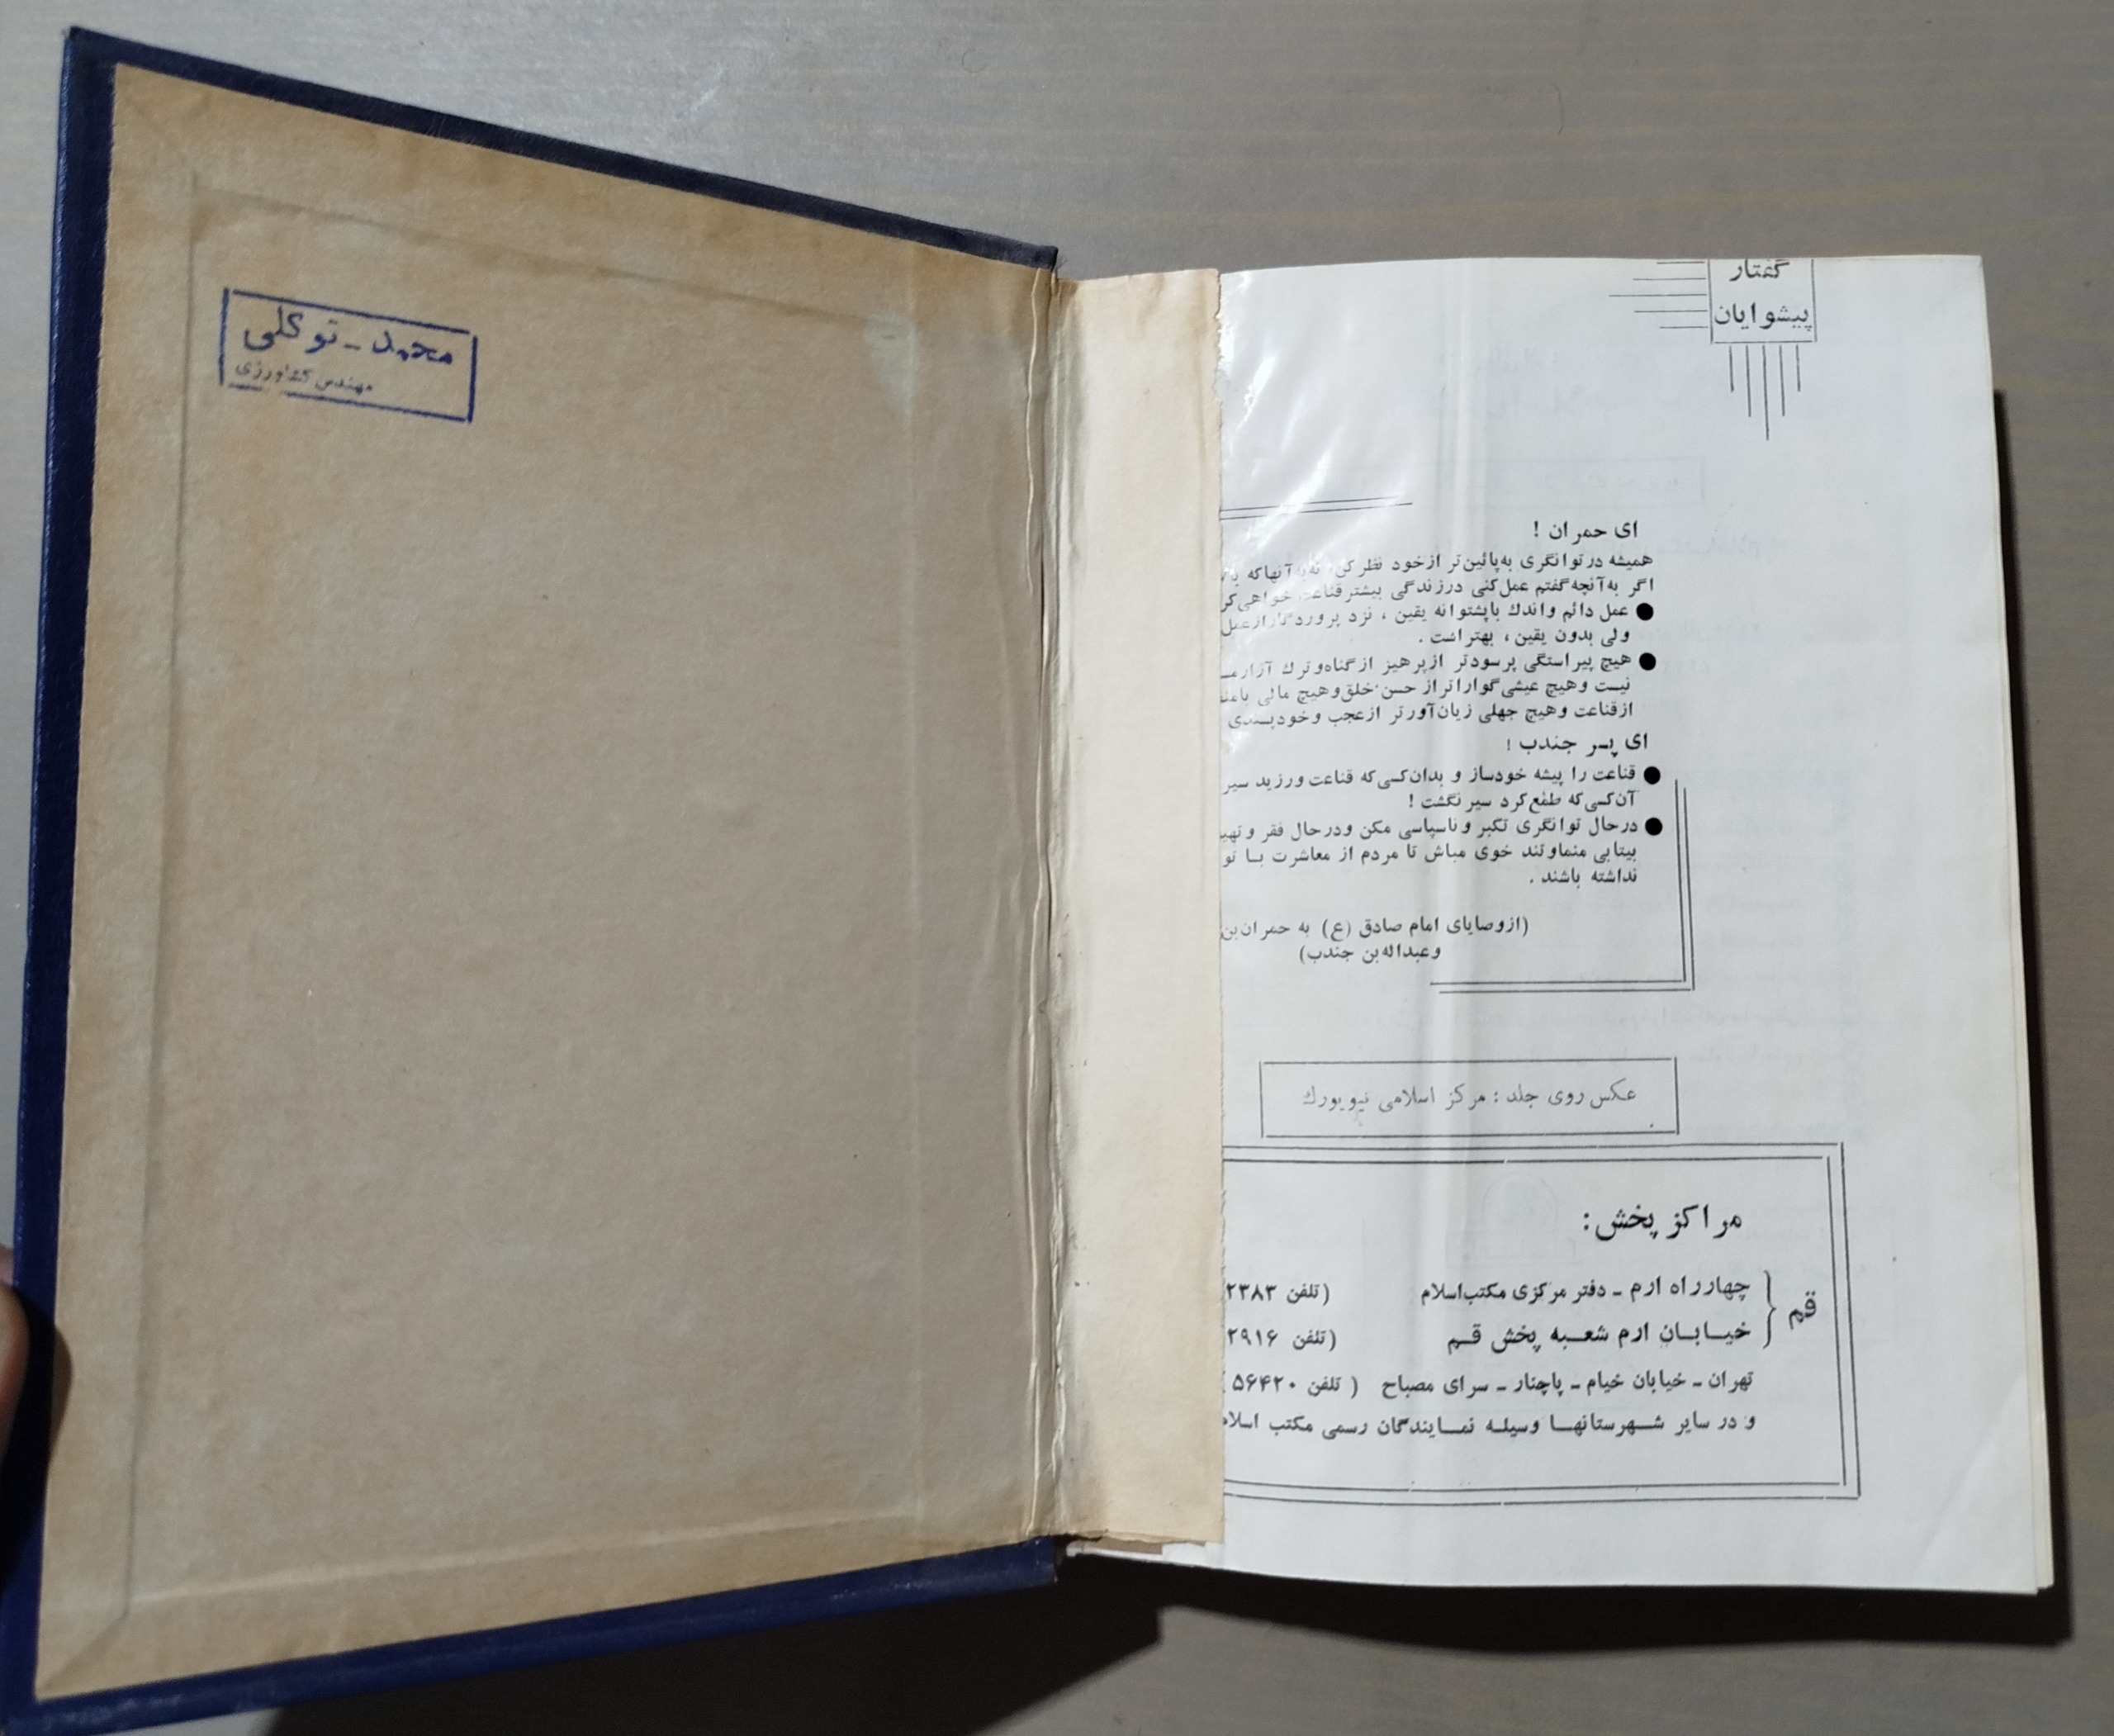 محمد - توکلی
مهندس کشاورزی
گفتار
پیشوایان
ای حمران !
همیشه در توانگری به‌پائین‌تر ازخود نظر کن، نه‌به آنهاکه
اگر به‌آنچه‌گفتم عمل‌کنی درزندگی بیشتر قناعت خواهی
● عمل دائم واندك باپشتوانه یقین ، نزد پروردگار ازعمل
ولی بدون یقین ، بهتر است .
● هیچ پیراستگی پرسودتر ازپرهیز ازگناه‌وترك آزار
نیست وهیچ عیشی‌گواراتراز حسن‌خلق‌وهیچ مالی
ازقناعت وهیچ جهلی زیان‌آورتر ازعجب وخودپسندی
ای پسر جندب !
● قناعت را پیشه خودساز و بدان‌کسی‌که قناعت ورزید سیر
آن‌کسی‌که طمع‌کرد سیر نگشت !
● درحال توانگری تکبر وناسپاسی مکن ودرحال فقر و
بیتابی منماوتند خوی مباش تا مردم از معاشرت بـا تو
نداشته باشند .
(ازوصایای امام صادق (ع) به حمران‌بن
وعبداله‌بن جندب)
عکس روی جلد : مرکز اسلامی نیویورك
مراکز پخش :
قم
چهارراه ارم ـ دفتر مرکزی مکتب‌اسلام (تلفن ۲۳۸۳
خیـابـان ارم شعـبه پخش قـم (تلفن ۲۹۱۶
تهران ـ خیابان خیام ـ پاچنار ـ سرای مصباح ( تلفن ۵۶۴۲۰ )
و در سایر شـهرستانهـا وسیلـه نمـایندگان رسمی مکتب